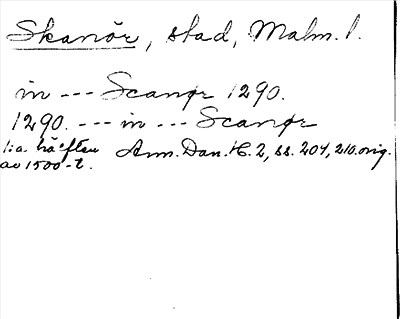 Skanör, stad, Malm. l.
in --- Scanør 1290.
1290. --- in --- Scanør
1:a häften av 1500-t. Ann. Dan. H. 2, ss. 204, 210. orig.